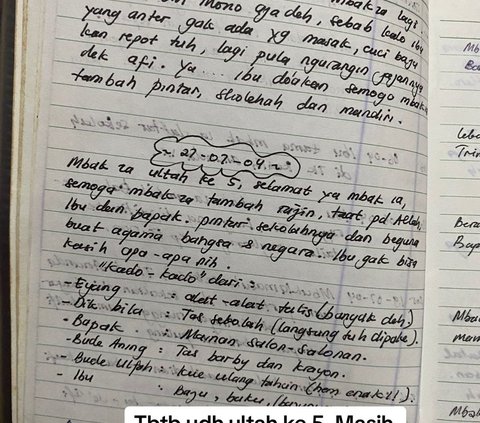 Mono aja deh, sebab kalo ibu
yang anter gak ada yg masak, cuci baju
kan repot tuh, lagi pula ngurangin jajannya
dek afi. Ya... Ibu doakan semoga mbak
tambah pintar, sholehah dan mandiri.
22-07-04
Mbak za ultah ke 5, selamat ya mbak ia,
semoga mbak za tambah rajin, taat pd Allah,
Ibu dan bapak. pintar sekolahnya dan beguna
buat agama bangsa & negara. Ibu gak bisa
kasih apa-apa nih.
"Kado-kado" dari:
- Eyang : alat-alat tulis (banyak deh.)
- Dik bila : Tas sekolah (langsung tuh dipake).
- Bapak : Mainan salon-salonan.
- Bude Aning : Tas barby dan krayon.
- Bude Ulfah : Kue ulang tahun (hem enak!!).
- Ibu : Baju, buku,
Tbtb udh ultah ke 5. Masih